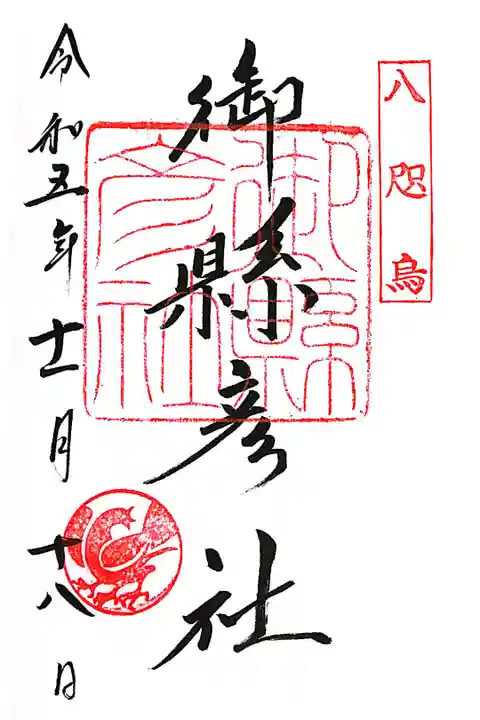 八咫烏
御縣彦社
御縣彦社
令和五年十一月十八日